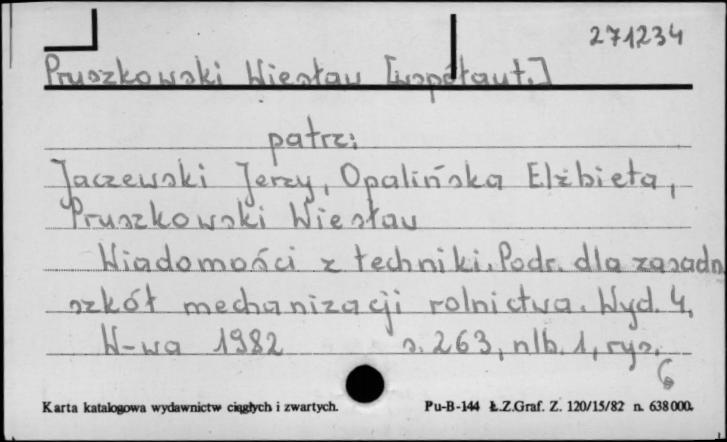 271234
Pruszkowski Wiesław [współaut.]
patrz:
Jaczewski Jerzy, Opalińska Elżbieta,
Pruszkowski Wiesław
Wiadomości z techniki. Podr. dla zasadn.
szkół mechanizacji rolnictwa. Wyd. 4.
W-wa 1982 s. 263, nlb. 1, rys.
Karta katalogowa wydawnictw ciągłych i zwartych. Pu-B-144 Ł.Z.Graf. Z. 120/15/82 n. 638000.